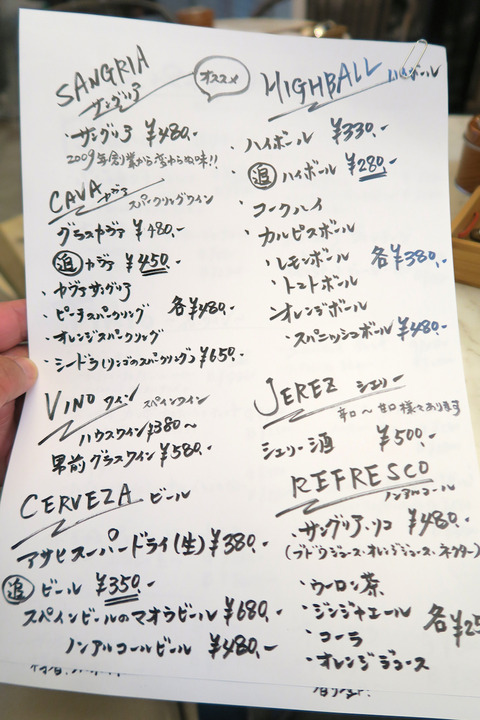 SANGRIA
サングリア
オススメ
・サングリア ¥480.-
2009年創業から変わらぬ味!!
CAVA カヴァ
スパークリングワイン
グラスカヴァ ¥480.-
追 カヴァ ¥450.-
・カヴァサングリア
・ピーチスパークリング 各¥480.-
・オレンジスパークリング
・シードラ(リンゴのスパークリング) ¥650.-
VINO ワイン スペインワイン
ハウスワイン ¥380〜
男前グラスワイン ¥580.-
CERVEZA ビール
アサヒスーパードライ(生) ¥380.-
追 ビール ¥350.-
スペインビールのマオウビール ¥680.-
ノンアルコールビール ¥480.-
HIGHBALL ハイボール
・ハイボール ¥330.-
・追 ハイボール ¥280.-
・コークハイ
・カルピスボール
・レモンボール 各¥380.-
・トマトボール
・オレンジボール
・スパニッシュボール ¥480.-
JEREZ シェリー
辛口〜甘口様々あります
シェリー酒 ¥500.-
REFRESCO
ノンアルコール
・サングリア・リコ ¥480.-
(ブドウジュース・オレンジジュース・ネクター)
・ウーロン茶
・ジンジャエール 各¥25
・コーラ
・オレンジジュース